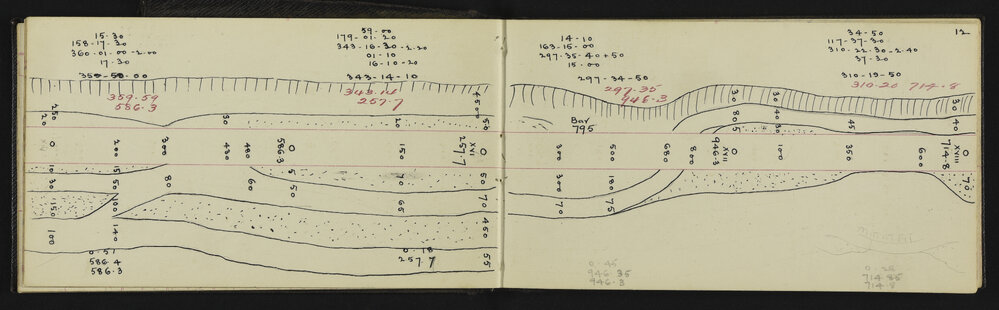 15-30
158-17-30
360-01-00-2-00
17-30
359-59-00
359.59
586.3
59-00
179-01-20
343-16-30-2-20
01-10
16-10-20
343-14-10
343.14
257.7
14-10
163-15-00
297-35-40+50
15-00
297-34-50
297.35
946.3
12
34-50
117-37-30
310-22-30-2-40
37-30
310-19-50
310-20 714.8
250
20
30
20
4500
50
Bar
795
30
80
5
40
30
45
30
40
0
200
300
430
480
586.3
0
150
257.7
XVII
0
300
500
680
800
946.3
XVII
0
100
350
600
714.8
XVIII
0
10
30
150
100
15
50
100
140
80
60
5
50
70
65
50
70
450
55
300
70
180
75
70
0.51
586.4
586.3
0.18
257.7
0.45
946.35
946.3
714.85
714.8